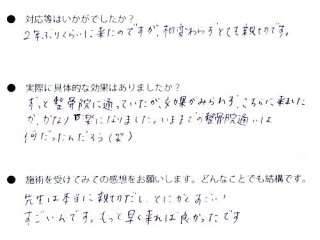 ● 対応等はいかがでしたか?
2年ぶりくらいに来たのですが、相変わらずとても親切です。
● 実際に具体的な効果はありましたか?
ずっと整骨院に通っていたが、効果がみられず、こちらに来ました
が、かなり楽になりました。いままでの整骨院通いは
何だったんだろう(笑)
● 施術を受けてみての感想をお願いします。どんなことでも結構です。
先生は本当に親切だし、とにかくすごい!
すごいんです。もっと早く来れば良かったです